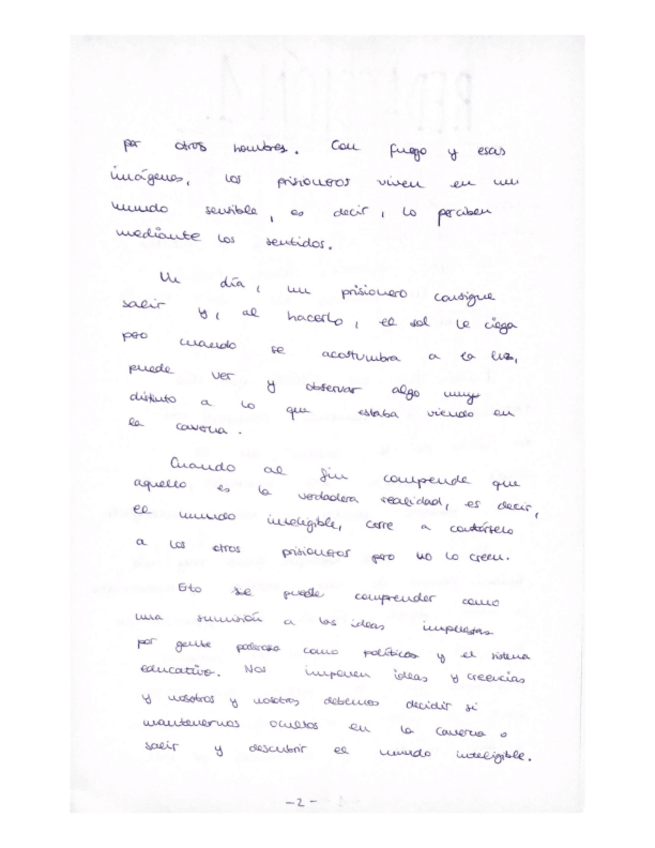 por otros hombres. Con fuego y esas
imágenes, los prisioneros viven en un
mundo sensible, es decir, lo perciben
mediante los sentidos.
Un día, un prisionero consigue
salir y, al hacerlo, el sol le ciega
pero cuando se acostumbra a la luz,
puede ver y observar algo muy
distinto a lo que estaba viendo en
la caverna.
Cuando al fin comprende que
aquello es la verdadera realidad, es decir,
el mundo inteligible, corre a contárselo
a los otros prisioneros pero no lo creen.
Esto se puede comprender como
una sumisión a las ideas impuestas
por gente poderosa como políticos y el sistema
educativo. Nos imponen ideas y creencias
y nosotros y nosotras debemos decidir si
mantenernos ocultos en la caverna o
salir y descubrir el mundo inteligible.
-2-